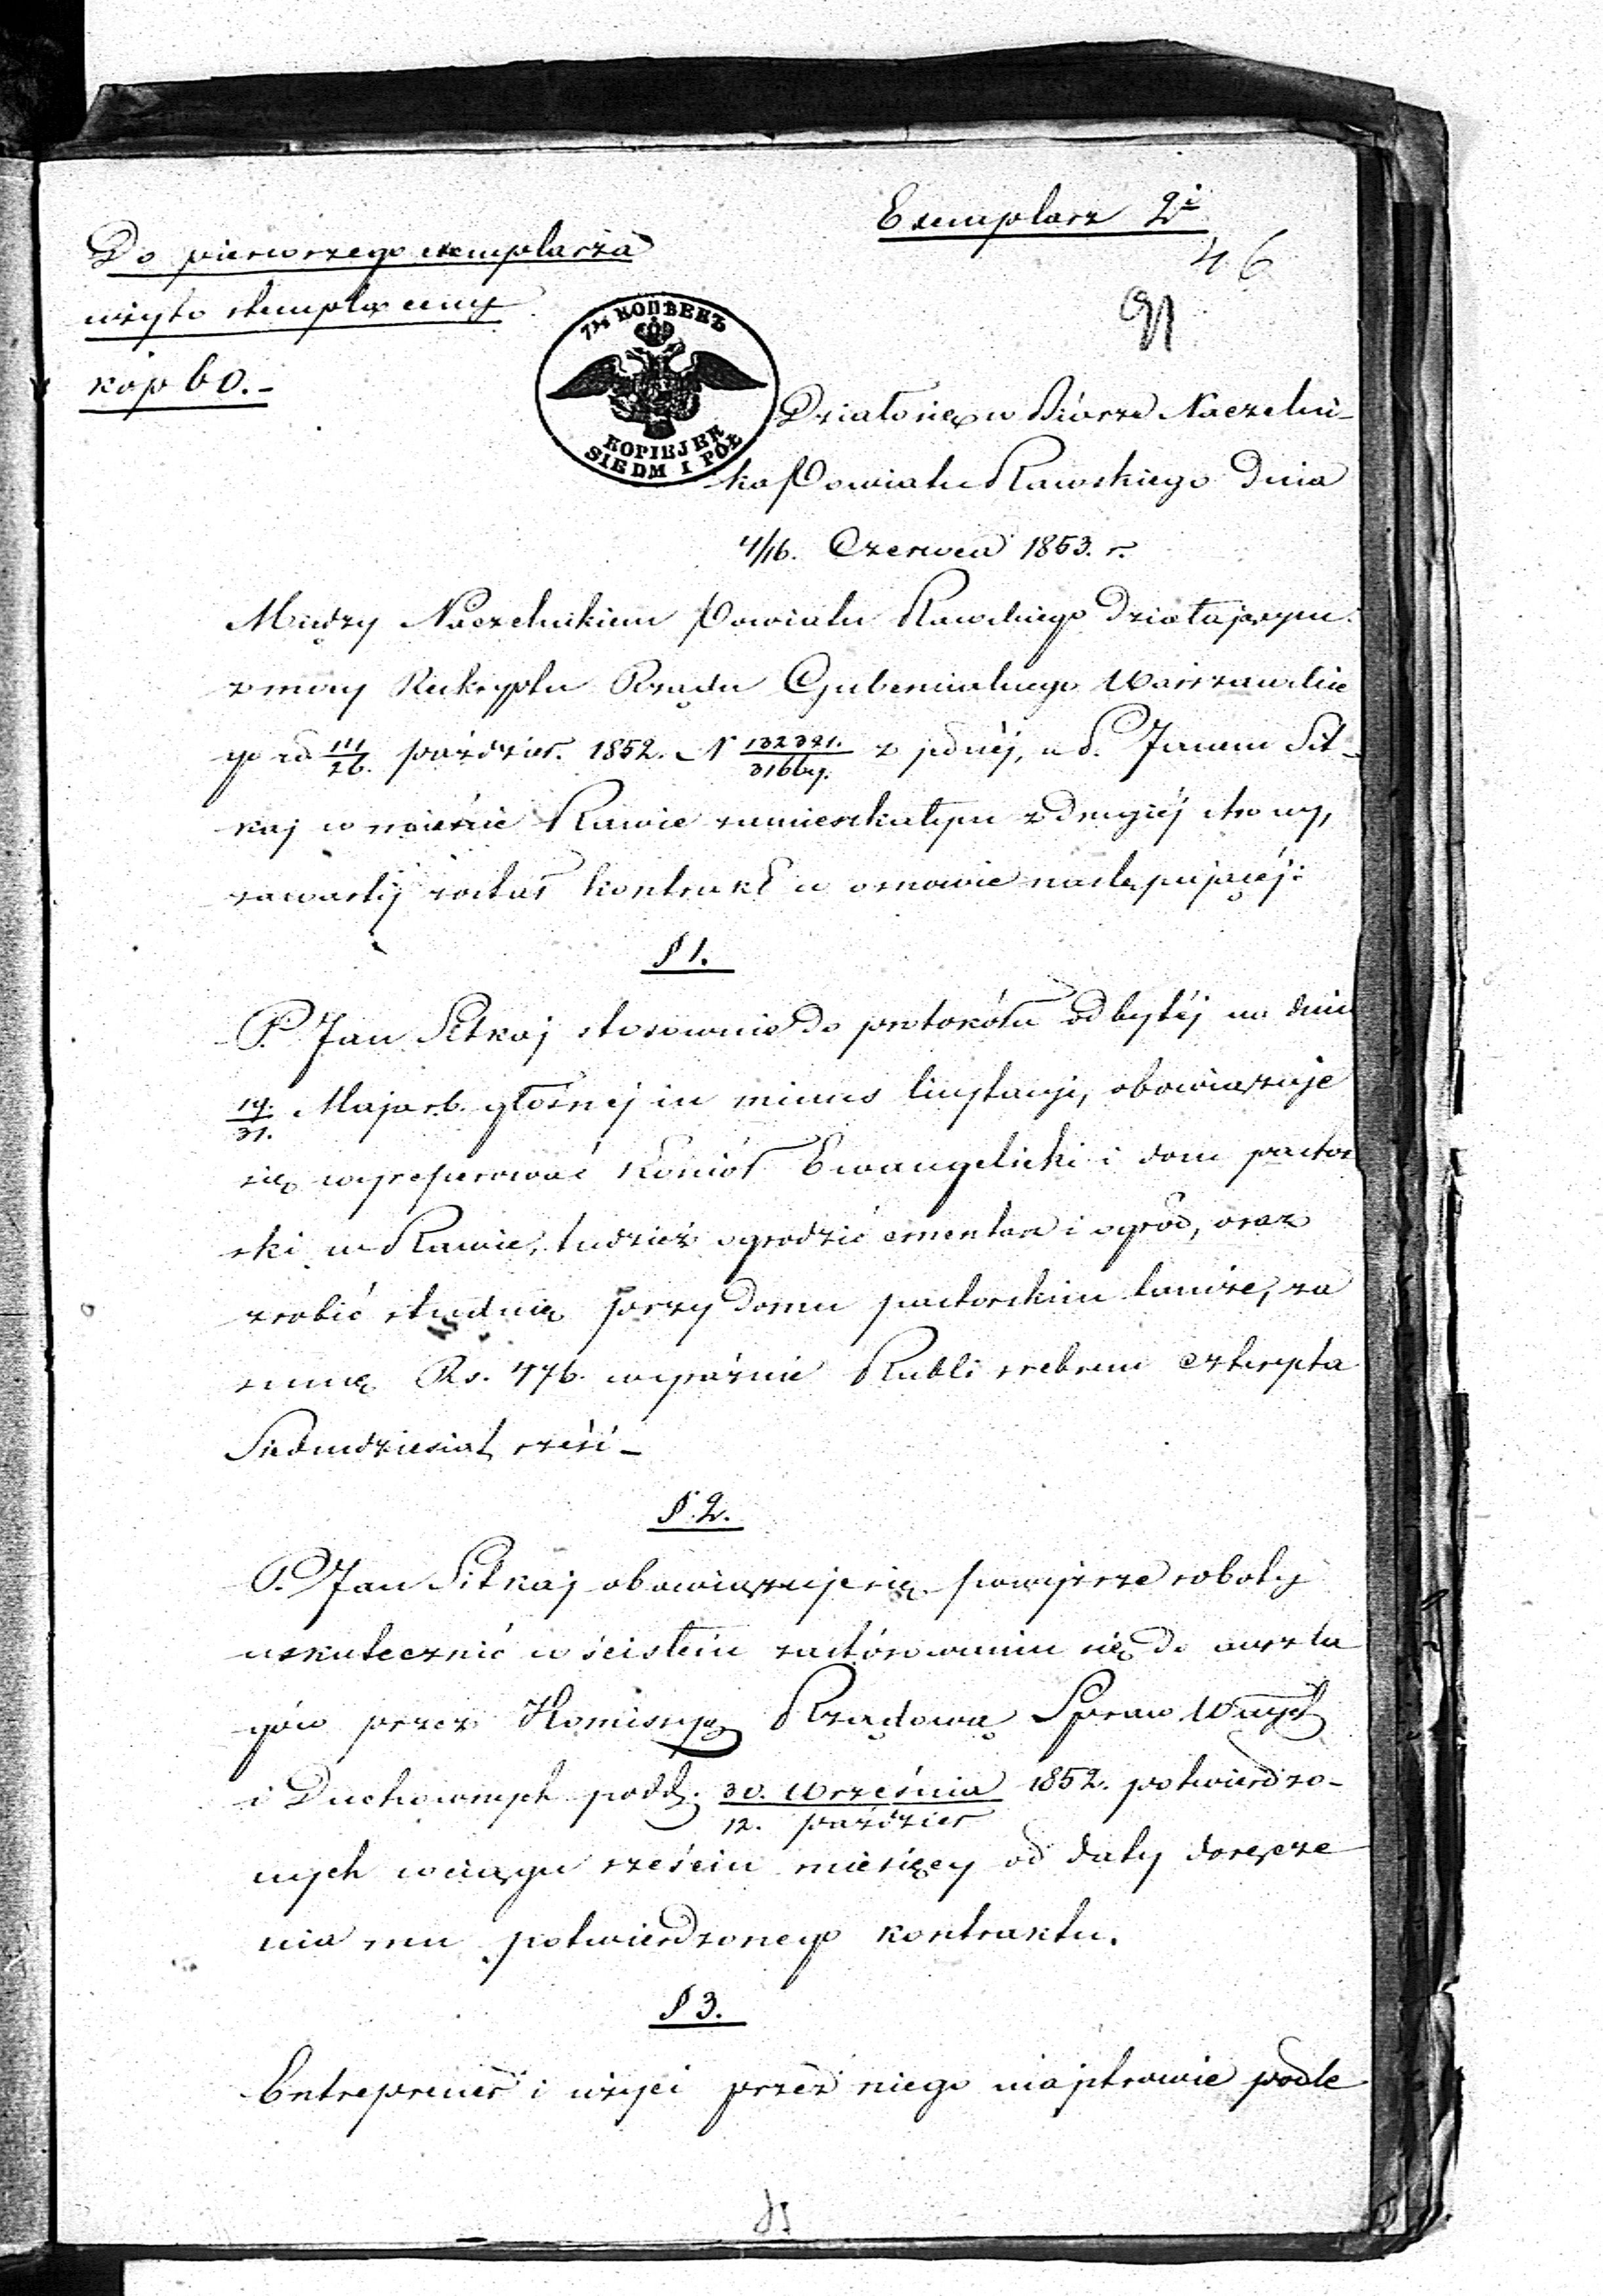 Exemplarz 2i
46
Do pierwszego exemplarza
użyto stempla ceny
kop 60.-
7½ КОПѢЕКЪ
KOPIEJEK
SIEDM I PÓŁ
Działo się w Biórze Naczelni-
ka Powiatu Rawskiego dnia
4/16. Czerwca 1853. r.
Między Naczelnikiem Powiatu Rawskiego działającym
z mocy Reskryptu Rządu Gubernialnego Warszawskie
go od 14/26. paździer. 1852. N 132321./31664. z jednéj, a P. Janem Sit-
kaj w mieście Rawie zamieszkałym z drugiéj strony,
zawarty został kontrakt w osnowie następującéj:
§ 1.
P. Jan Sitkaj stosownie do protokółu odbytéj na dniu
19./31. Maja r.b. głośnéj in minus licytacyi, obowiązuje
się wyreperować Kościół Ewangelicki i dom pastor
ski w Rawie, tudzież ogrodzić cmentarz i ogród, oraz
zrobić studnię przy domu pastorskim tamże, za
summę Rs. 476. wyraźnie Rubli srebrem czterysta
Siedmdziesiąt sześć-
§ 2.
P. Jan Sitkaj obowiązuje się powyższe roboty
uskutecznić w ścisłem zastósowaniu się do anszla
gów przez Komissyę Rządową Spraw Wnych
i Duchownych pod d. 30. Września/12. paździer 1852. potwierdzo-
nych w ciągu sześciu miesięcy od daty doręcze
nia mu potwierdzonego kontraktu.
§ 3.
Entreprener i użyci przez niego majstrowie podle